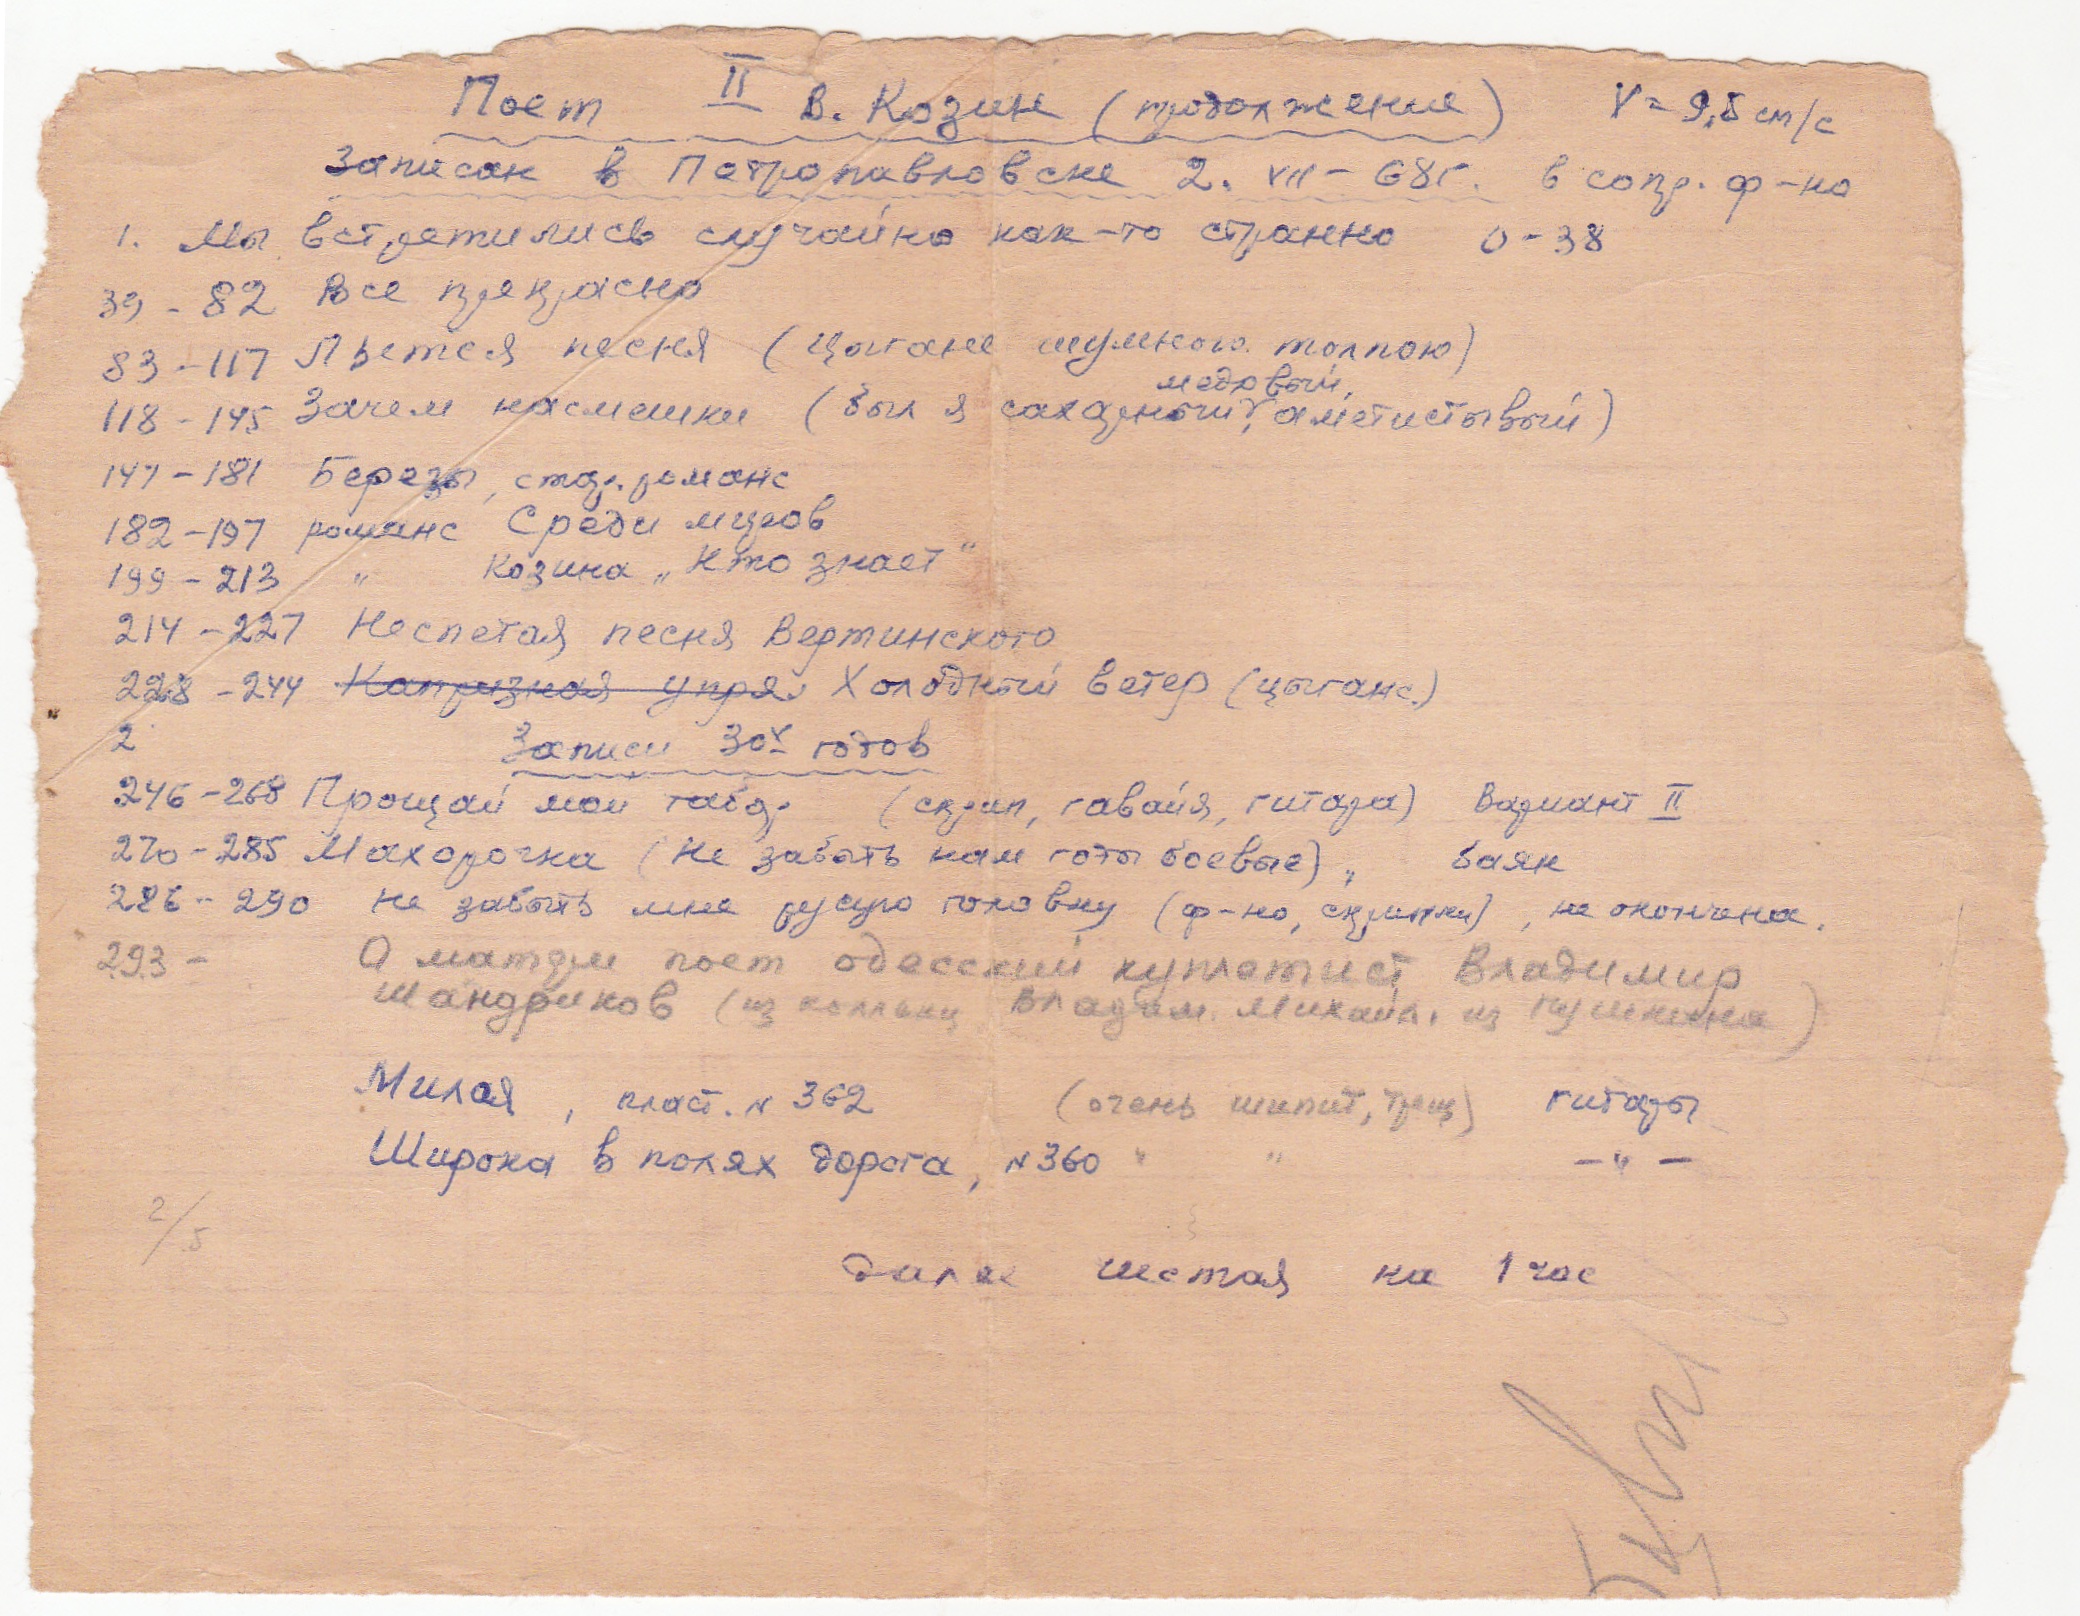 Поет II В. Козин (продолжение) V = 9,5 см/с
Записан в Петропавловске 2. VII – 68г. в сопр. ф-но
1. Мы встретились случайно как-то странно 0 – 38
39 – 82 Все прекрасно
83 – 117 Льется песня (Цыгане шумною толпою)
медовый,
118 – 145 Зачем насмешки (был я сахарный, аметистовый)
147 – 181 Березы, стар. романс
182 – 197 романс Среди миров
199 – 213 " Козина „Кто знает"
214 – 227 Неспетая песня Вертинского
228 – 244 Капризная упрям Холодный ветер (цыганс.)
2 Записи 30х годов
246 – 268 Прощай мой табор (скрип, гавайя, гитара) Вариант II
270 – 285 Махорочка (Не забыть нам годы боевые), баян
286 – 290 Не забыть мне русую головку (ф-но, скрипки), не окончена.
293 – О матери поет одесский куплетист Владимир
Шандриков (из коллекц Владим. Михайл. из Пушкина)
Милая, пласт. N 362 (очень шипит, трещ) гитары
Широка в полях дорога, N 360 " " – " –
2/5
Далее шестая на 1 час